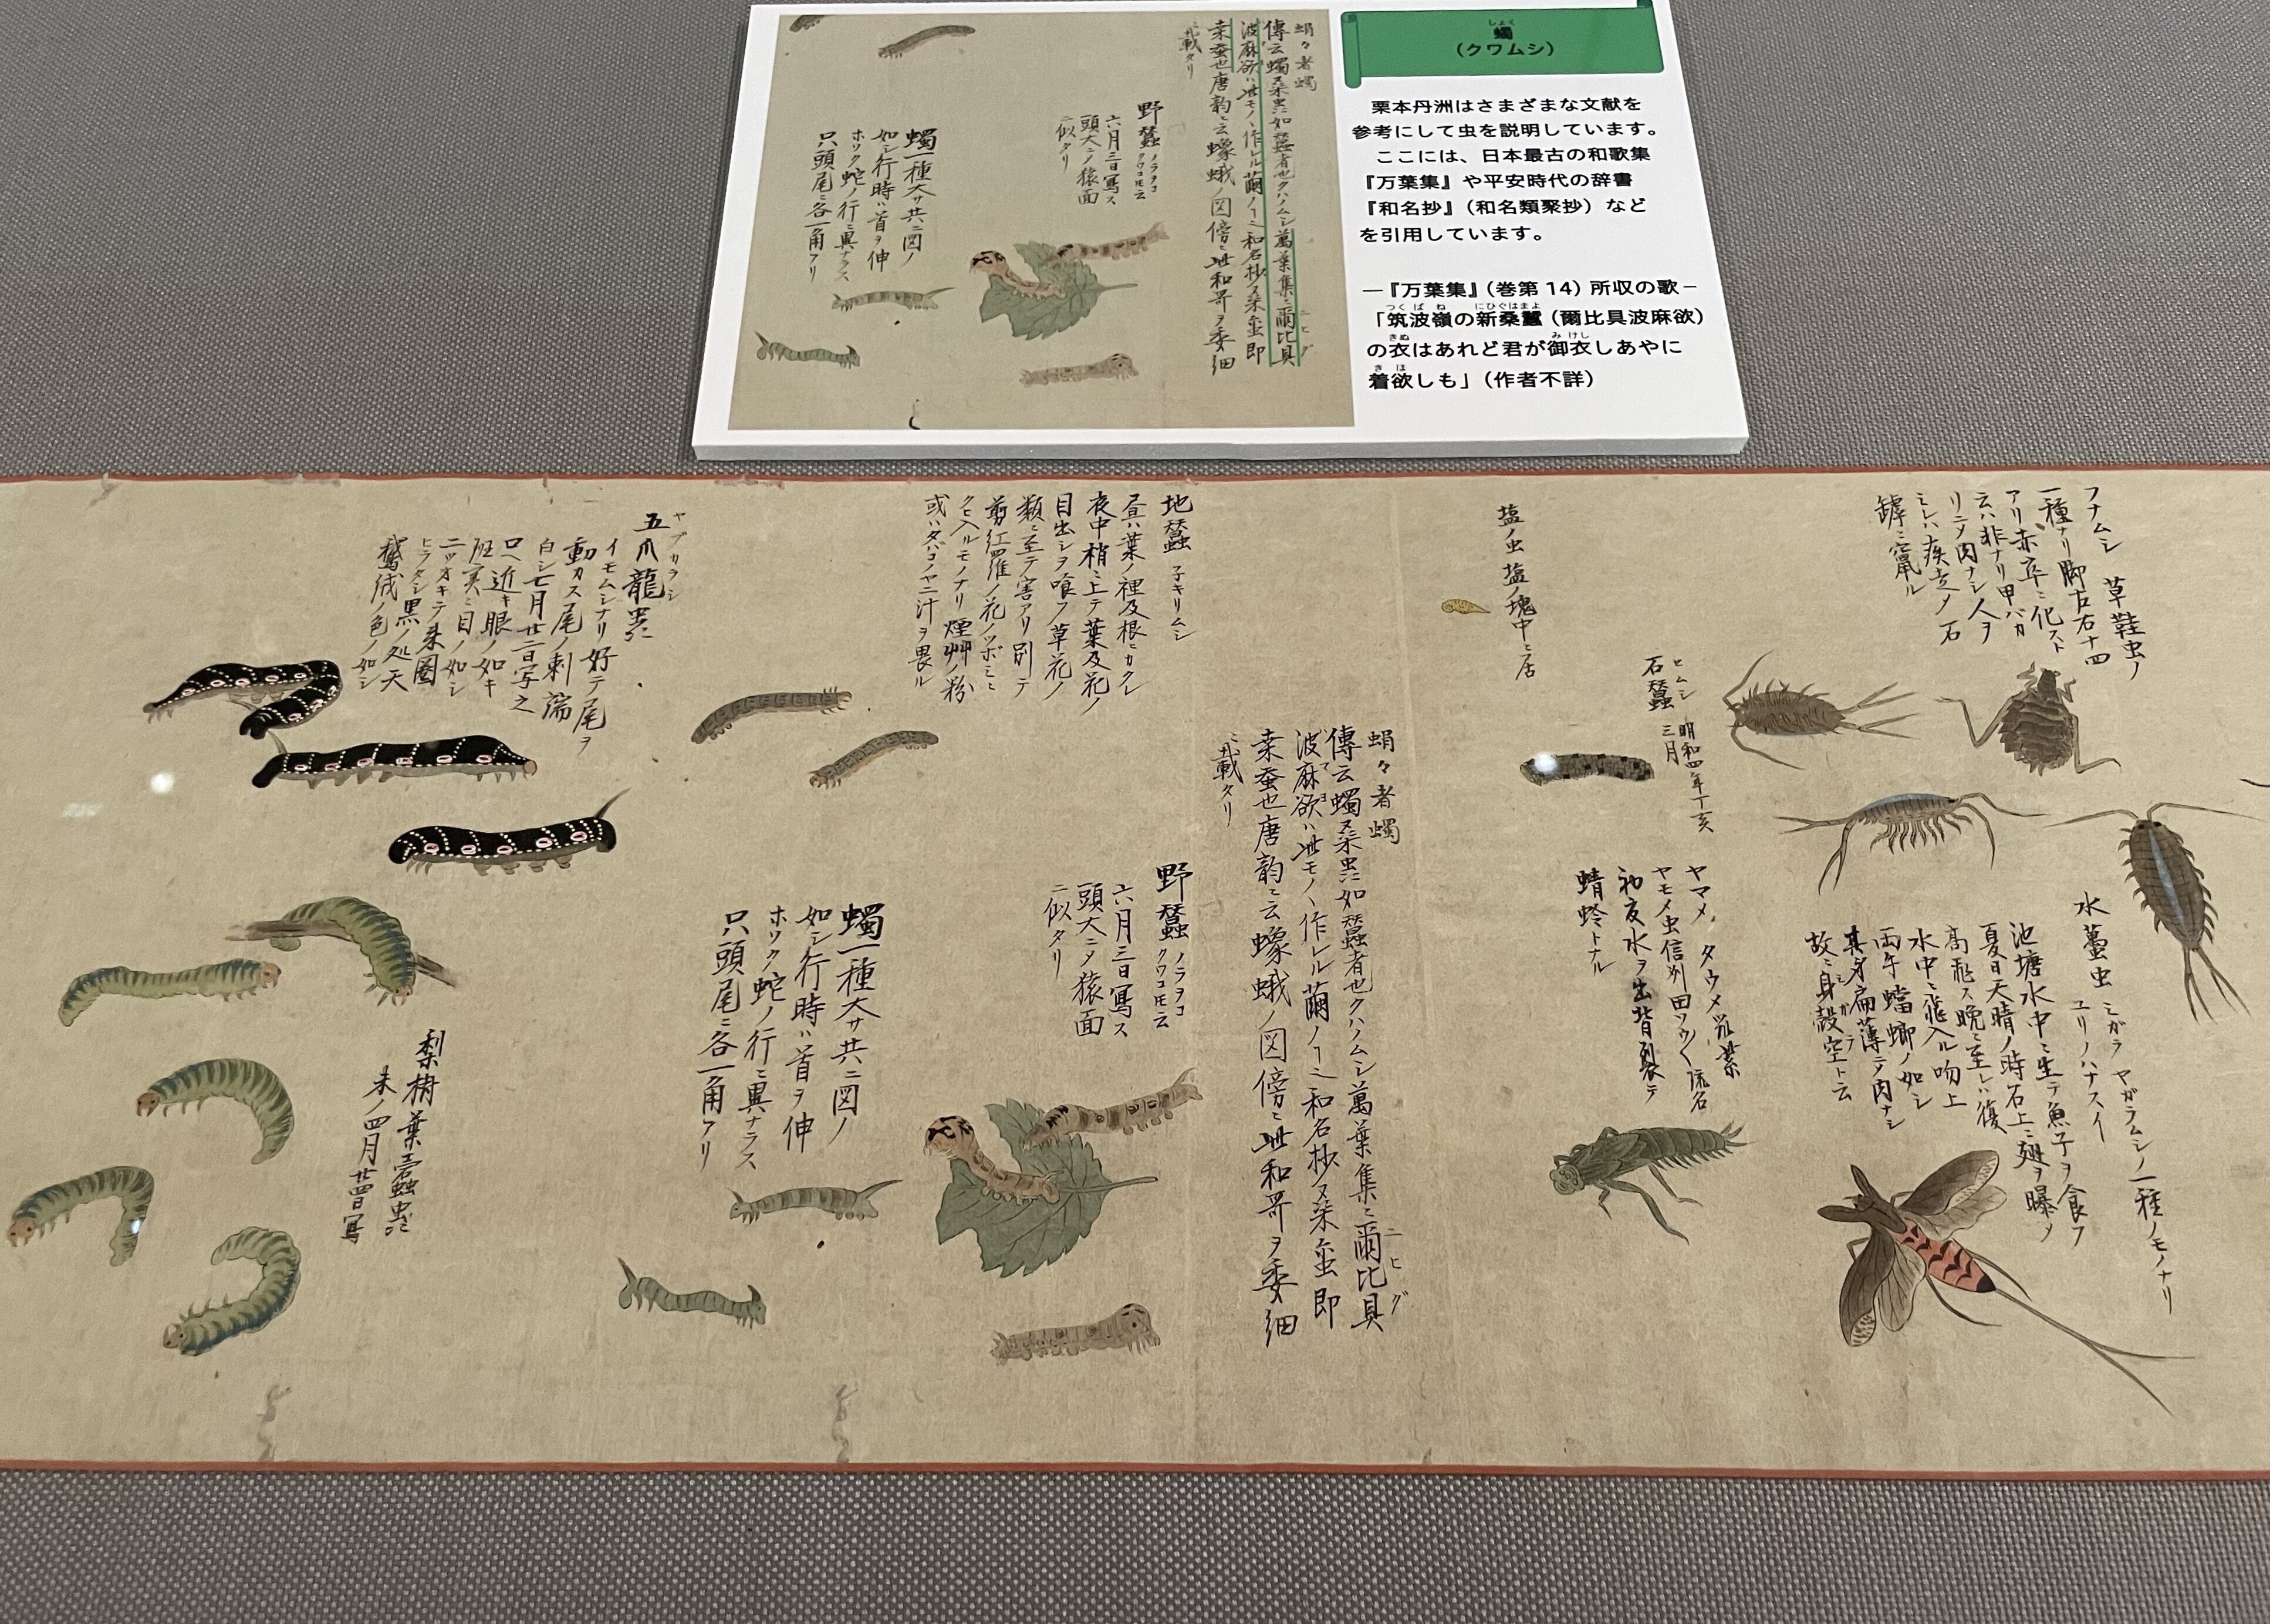 しょく
蠋
（クワムシ）
栗本丹洲はさまざまな文献を
参考にして虫を説明しています。
ここには、日本最古の和歌集
『万葉集』や平安時代の辞書
『和名抄』（和名類聚抄）など
を引用しています。
―『万葉集』（巻第14）所収の歌―
つくばね にひぐはまよ
「筑波嶺の新桑蠶（爾比具波麻欲）
きぬ みけし
の衣はあれど君が御衣しあやに
き ほ
着欲しも」（作者不詳）
蜎々者蠋
傳云蠋桑虫如蠶者也クハノムシ萬葉集ニ爾比具
波麻欲ハ此モノヽ作レル繭ノ 和名抄ニ桑蚕即
桒蚕也唐韵ニ云蠑蛾ノ図傍ニ此和哥ヲ委細
ニ載タリ
野蠶 ノラヲコ クワコ 云
六月三日寫ス
頭大ニメ猿面
ニ似タリ
蠋一種大サ共ニ図ノ
如シ行時ハ首ヲ伸
ホソク蛇ノ行ニ異ナラス
只頭尾ニ各一角アリ
フナムシ 草鞋虫ノ
一種ナリ脚左右十四
アリ赤卒ニ化スト
云ハ非ナリ甲バカ
リニメ肉ナシ人ヲ
ミレハ疾走メ石
罅ニ竄ル
水蠆虫 ミガラ ヤガラムシノ一種ノモノナリ
ユリノハナスイ
池塘水中ニ生テ魚子ヲ食フ
夏日天晴ノ時石上ニ翅ヲ曝メ
高飛ス晩ニ至レハ復
水中ニ飛入ル吻上
両牟蟷螂ノ如シ
其身扁薄ニテ肉ナシ
故ニ身殻空ト云
塩ノ虫 塩ノ塊中ニ居
石蠶 ヒムシ 明和四年丁亥
三月
ヤマメ タウメ
ヤモメ虫信州田
初夏水ヲ出背裂テ
蜻蛉トナル
地蠶 子キリムシ
昼ハ葉ノ裡及根ニカクレ
夜中梢ニ上テ葉及花ノ
目出シヲ喰フ草花ノ
類ニ至テ害アリ別テ
剪紅羅ノ花ノツボミニ
クヒ入ルモノナリ煙艸ノ粉
或ハタバコノヤニ汁ヲ畏ル
ヤブカラシ
五爪龍
イモムシナリ好テ尾ヲ
動カス尾ノ刺端
白シ七月廿二日写之
口ヘ近キ眼ノ如キ
ニツオキテ来圏
ヒラタシ黒ノ処天
鵞絨ノ色ノ如シ
梨樹葉
未ノ四月廿四日寫